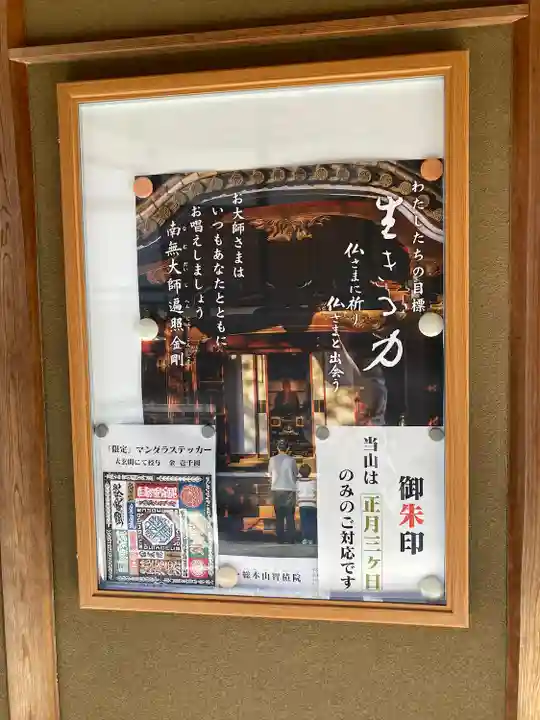 わたしたちの目標
生きる力
仏さまに祈り
仏さまと出会う
お大師さまは
いつもあなたとともに
お唱えしましょう
南無大師遍照金剛
なむだいしへんじょうこんごう
総本山智積院
御朱印
当山は正月三ヶ日
のみのご対応です
「限定」マンダラステッカー
大玄関にて授与 金 壱千圓